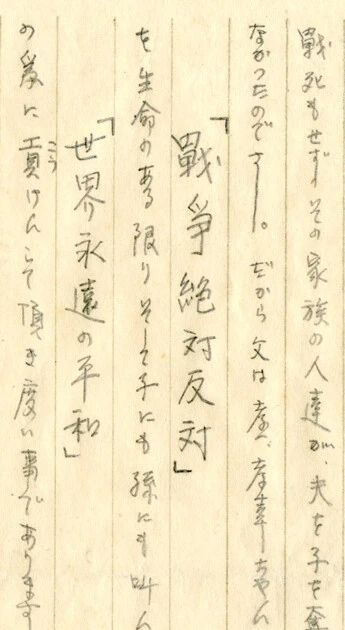 戰死もせず、その家族の人達が、夫を子を奪
なかったのです。だから父は
「戰爭絶対反対」
を生命のある限りそして子にも孫にも叫ん
「世界永遠の平和」
の為に貢けんして頂き度い事であります
こう